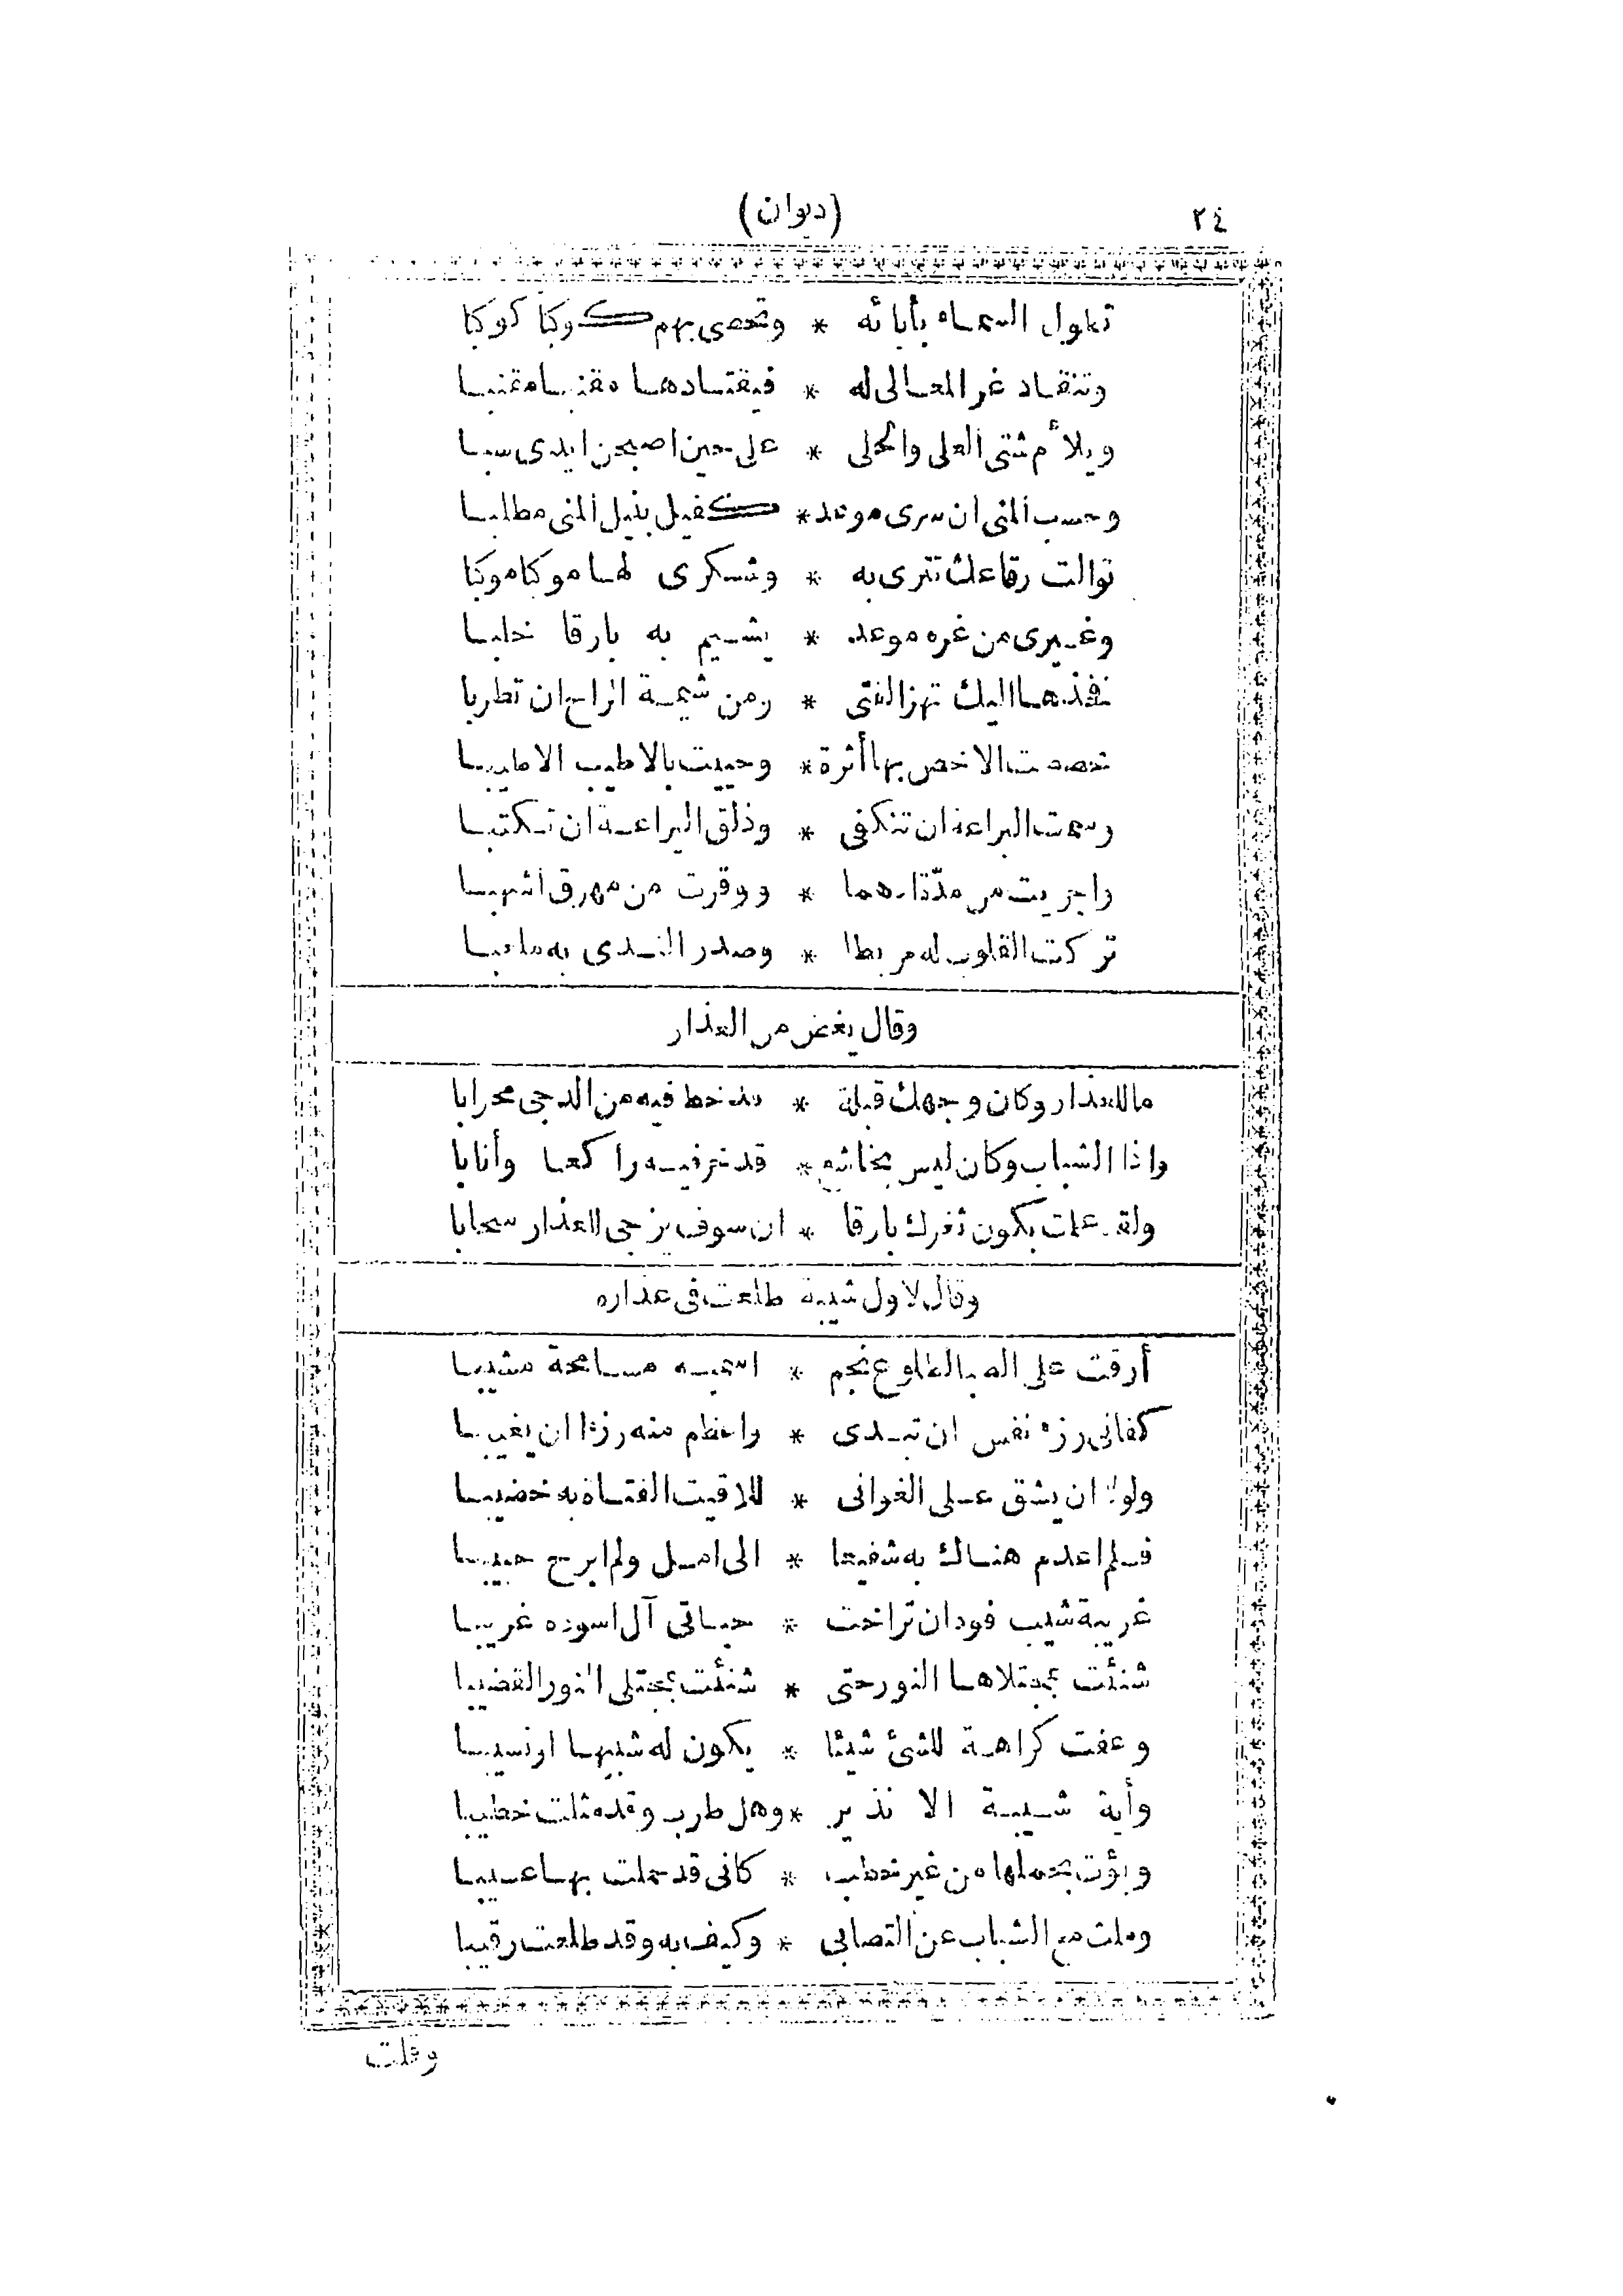 ٢٤
(ديوان)
تطول السماء بأبائه * وتحصى بهم كوكبا كوكبا
وتنقاد غر المعالى له * فيقتادها مقنبا مقنبا
ويلأم شتى العلى والحلى * على حين اصبحن ايدى سبا
وحسب المنى ان سرى موعد * كفيل بنيل المنى مطلبا
توالت رقاعك تترى به * وشكرى لها موكبا موكبا
وغيرى من غره موعد * يشيم به بارقا خلبا
فخذها اليك تهز الفتى * ومن شيمة الراح ان تطربا
خصصت الاخص بها أثرة * وحييت بالاطيب الاطيبا
وسمت البراعة ان تنكفى * وذلق اليراعة ان تكتبا
واجريت من مدّة ادهما * ووقرت من مهرق اشهبا
تركت القلوب له مربطا * وصدر الندى به ملعبا
وقال يغض من العذار
ما للعذار وكان وجهك قبلة * قد خط فيه من الدجى محرابا
واذا الشباب وكان ليس بخاشع * قد خر فيه راكعا وأنابا
ولقد علمت بكون ثغرك بارقا * ان سوف يزجى للعذار سحابا
وقال لاول شيبة طلعت فى عذاره
أرقت على الصبا لطلوع نجم * اسميه مسامحة مشيبا
كفانى رزء نفس ان تبدى * واعظم منه رزءا ان يغيبا
ولولا ان يشق على الغوانى * للاقيت الفتاة به خضيبا
فلم اعدم هناك به شفيعا * الى امل ولم ابرح حبيبا
غريبة شيب فودان تراخت * حياتى آل اسوده غريبا
شنئت بمجتلاها النور حتى * شنئت بمجتلى النور القضيبا
وعفت كراهة للشئ شيئا * يكون له شبيها او نسيبا
وأية شيبة الا نذير * وهل طرب وقد مثلت خطيبا
وبؤت بحملها من غير خطب * كانى قد حملت بها عسيبا
وملت مع الشباب عن التصابى * وكيف به وقد طلعت رقيبا
وقلت